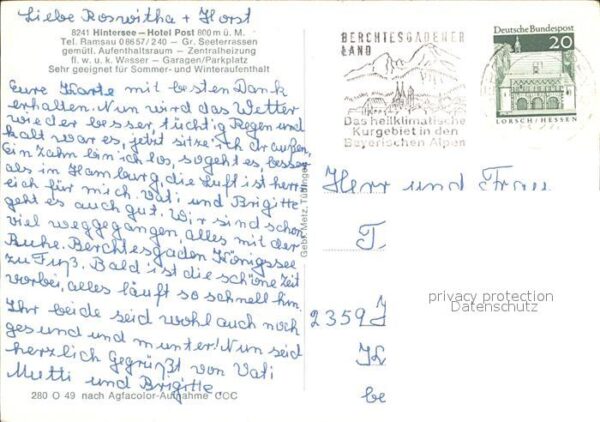 Liebe Roswitha + Horst
8241 Hintersee – Hotel Post 800 m ü. M.
Tel. Ramsau 08657/240 – Gr. Seeterrassen
gemütl. Aufenthaltsraum – Zentralheizung
fl. w. u. k. Wasser – Garagen/Parkplatz
Sehr geeignet für Sommer- und Winteraufenthalt
Eure Karte mit besten Dank
erhalten. Nun wird das Wetter
wieder besser, tüchtig Regen und
kalt war es, jetzt sitze ich draußen,
Ein Zahn bin ich los, so geht es, besser
als in Hamburg, die Luft ist herr-
lich für mich. Vati und Brigitte
geht es auch gut. Wir sind schon
viel weggegangen, alles mit der
Ruhe. Berchtesgaden Königssee
zu Fuß. Bald ist die schöne Zeit
vorbei, alles läuft so schnell hin.
Ihr beide seid wohl auch noch
gesund und munter! Nun seid
herzlich gegrüßt von Vati
Mutti und Brigitte
280 O 49 nach Agfacolor-Aufnahme COC
Gebr. Metz, Tübingen
BERCHTESGADENER
LAND
Das heilklimatische
Kurgebiet in den
Bayerischen Alpen
Deutsche Bundespost
20
LORSCH/HESSEN
Herr und Frau
T
2359 J
K
be
privacy protection
Datenschutz